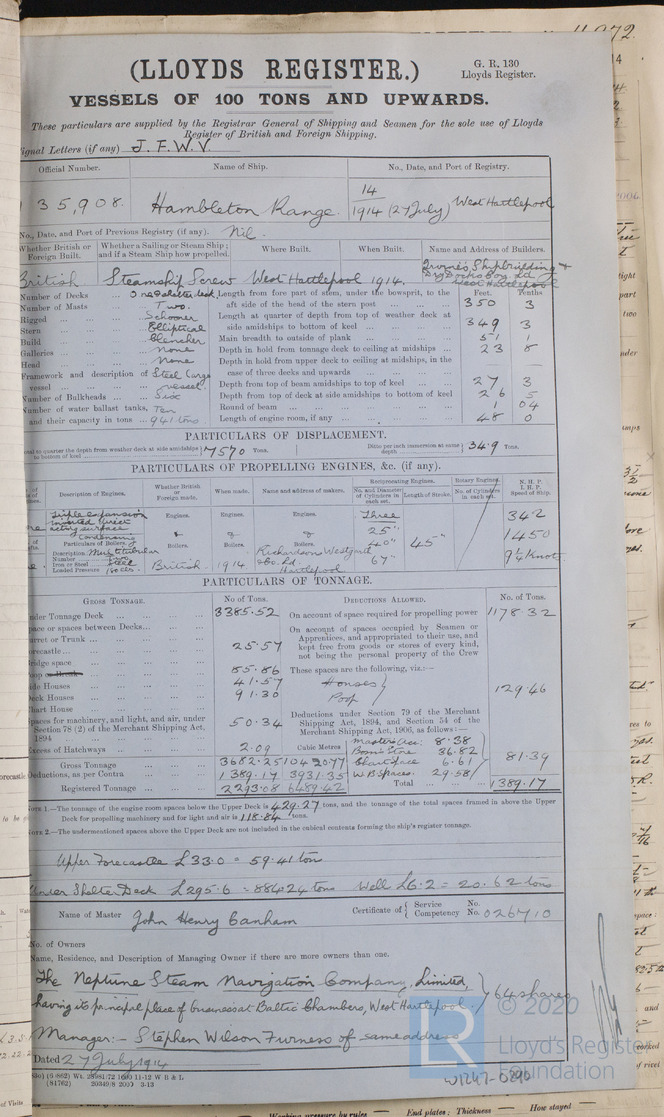 (LLOYDS REGISTER.)
G. R. 130
Lloyds Register.
VESSELS OF 100 TONS AND UPWARDS.
These particulars are supplied by the Registrar General of Shipping and Seamen for the sole use of Lloyds
Register of British and Foreign Shipping.
ignal Letters (if any) J. F. W. V.
Official Number. Name of Ship. No., Date, and Port of Registry.
35,908. Hambleton Range. 14
1914 (27 July) West Hartlepool
No., Date, and Port of Previous Registry (if any). Nil.
Whether British or Foreign Built. Whether a Sailing or Steam Ship; and if a Steam Ship how propelled. Where Built. When Built. Name and Address of Builders.
British Steamship Screw West Hartlepool 1914. Irvine's Shipbuilding & Dry Docks Coy. Ld West Hartlepool
Feet. Tenths
Number of Decks ... One & shelter deck Length from fore part of stem, under the bowsprit, to the aft side of the head of the stern post 350 3
Number of Masts ... Two.
Rigged ... Schooner Length at quarter of depth from top of weather deck at side amidships to bottom of keel 349 3
Stern ... Elliptical
Build ... Clencher Main breadth to outside of plank 51 1
Galleries ... None Depth in hold from tonnage deck to ceiling at midships 23 8
Head ... None Depth in hold from upper deck to ceiling at midships, in the case of three decks and upwards
Framework and description of vessel ... Steel Cargo vessel. Depth from top of beam amidships to top of keel 27 3
Number of Bulkheads ... Six Depth from top of deck at side amidships to bottom of keel 26 5
Number of water ballast tanks, Ten Round of beam 1 04
and their capacity in tons ... 941 tons. Length of engine room, if any 48 0
PARTICULARS OF DISPLACEMENT.
to quarter the depth from weather deck at side amidships to bottom of keel 7570 Tons. Ditto per inch immersion at same depth 34.9 Tons.
PARTICULARS OF PROPELLING ENGINES, &c. (if any).
Description of Engines. Whether British or Foreign made. When made. Name and address of makers. Reciprocating Engines. No. and Diameter of Cylinders in each set. Length of Stroke. Rotary Engines. No. of Cylinders in each set. N. H. P. I. H. P. Speed of Ship.
Triple expansion inverted direct acting surface condensing Engines. Engines. Engines. Three 342
Particulars of Boilers. & & & 25" 1450
Description Multitubular Boilers. Boilers. Boilers. 40" 45"
Number
Iron or Steel Steel British 1914 Richardsons Westgarth & Co. Ld. Hartlepool 67" 9¼ Knots
Loaded Pressure 180 lbs.
PARTICULARS OF TONNAGE.
GROSS TONNAGE. No of Tons. DEDUCTIONS ALLOWED. No. of Tons.
nder Tonnage Deck 3385.52 On account of space required for propelling power 1178.32
pace or spaces between Decks On account of spaces occupied by Seamen or
urret or Trunk Apprentices, and appropriated to their use, and
orecastle 25.57 kept free from goods or stores of every kind,
not being the personal property of the Crew
ridge space 85.86 These spaces are the following, viz.:—
oop or Break 41.57 Houses
ide Houses 91.30 Poop 129.46
eck Houses
hart House
paces for machinery, and light, and air, under Section 78 (2) of the Merchant Shipping Act, 1894 50.34 Deductions under Section 79 of the Merchant Shipping Act, 1894, and Section 54 of the Merchant Shipping Act, 1906, as follows:—
xcess of Hatchways 2.09 Cubic Metres Master's Acc: 8.38
Bosn's Store 36.82
Gross Tonnage 3682.25 10420.77 Chart space 6.61 81.39
eductions, as per Contra 1389.17 3931.35 W.B Spaces. 29.58
Registered Tonnage 2293.08 6489.42 Total 1389.17
NOTE 1.—The tonnage of the engine room spaces below the Upper Deck is 429.27 tons, and the tonnage of the total spaces framed in above the Upper
Deck for propelling machinery and for light and air is 118.84 tons.
NOTE 2.—The undermentioned spaces above the Upper Deck are not included in the cubical contents forming the ship's register tonnage.
Upper Forecastle £33.0 = 59.41 tons
Under Shelter Deck £295.6 = 884.24 tons Well £6.2 = 20.62 tons
Name of Master John Henry Canham Certificate of { Service No. Competency No. 026710
No. of Owners
Name, Residence, and Description of Managing Owner if there are more owners than one.
The Neptune Steam Navigation Company, Limited,
having its principal place of business at Baltic Chambers, West Hartlepool. } 64 shares
Manager:— Stephen Wilson Furness of same address
Dated 27 July 1914
(81762) 20349/8 2000 3-13
LR © 2020
Lloyd's Register
Foundation
W1247-0290